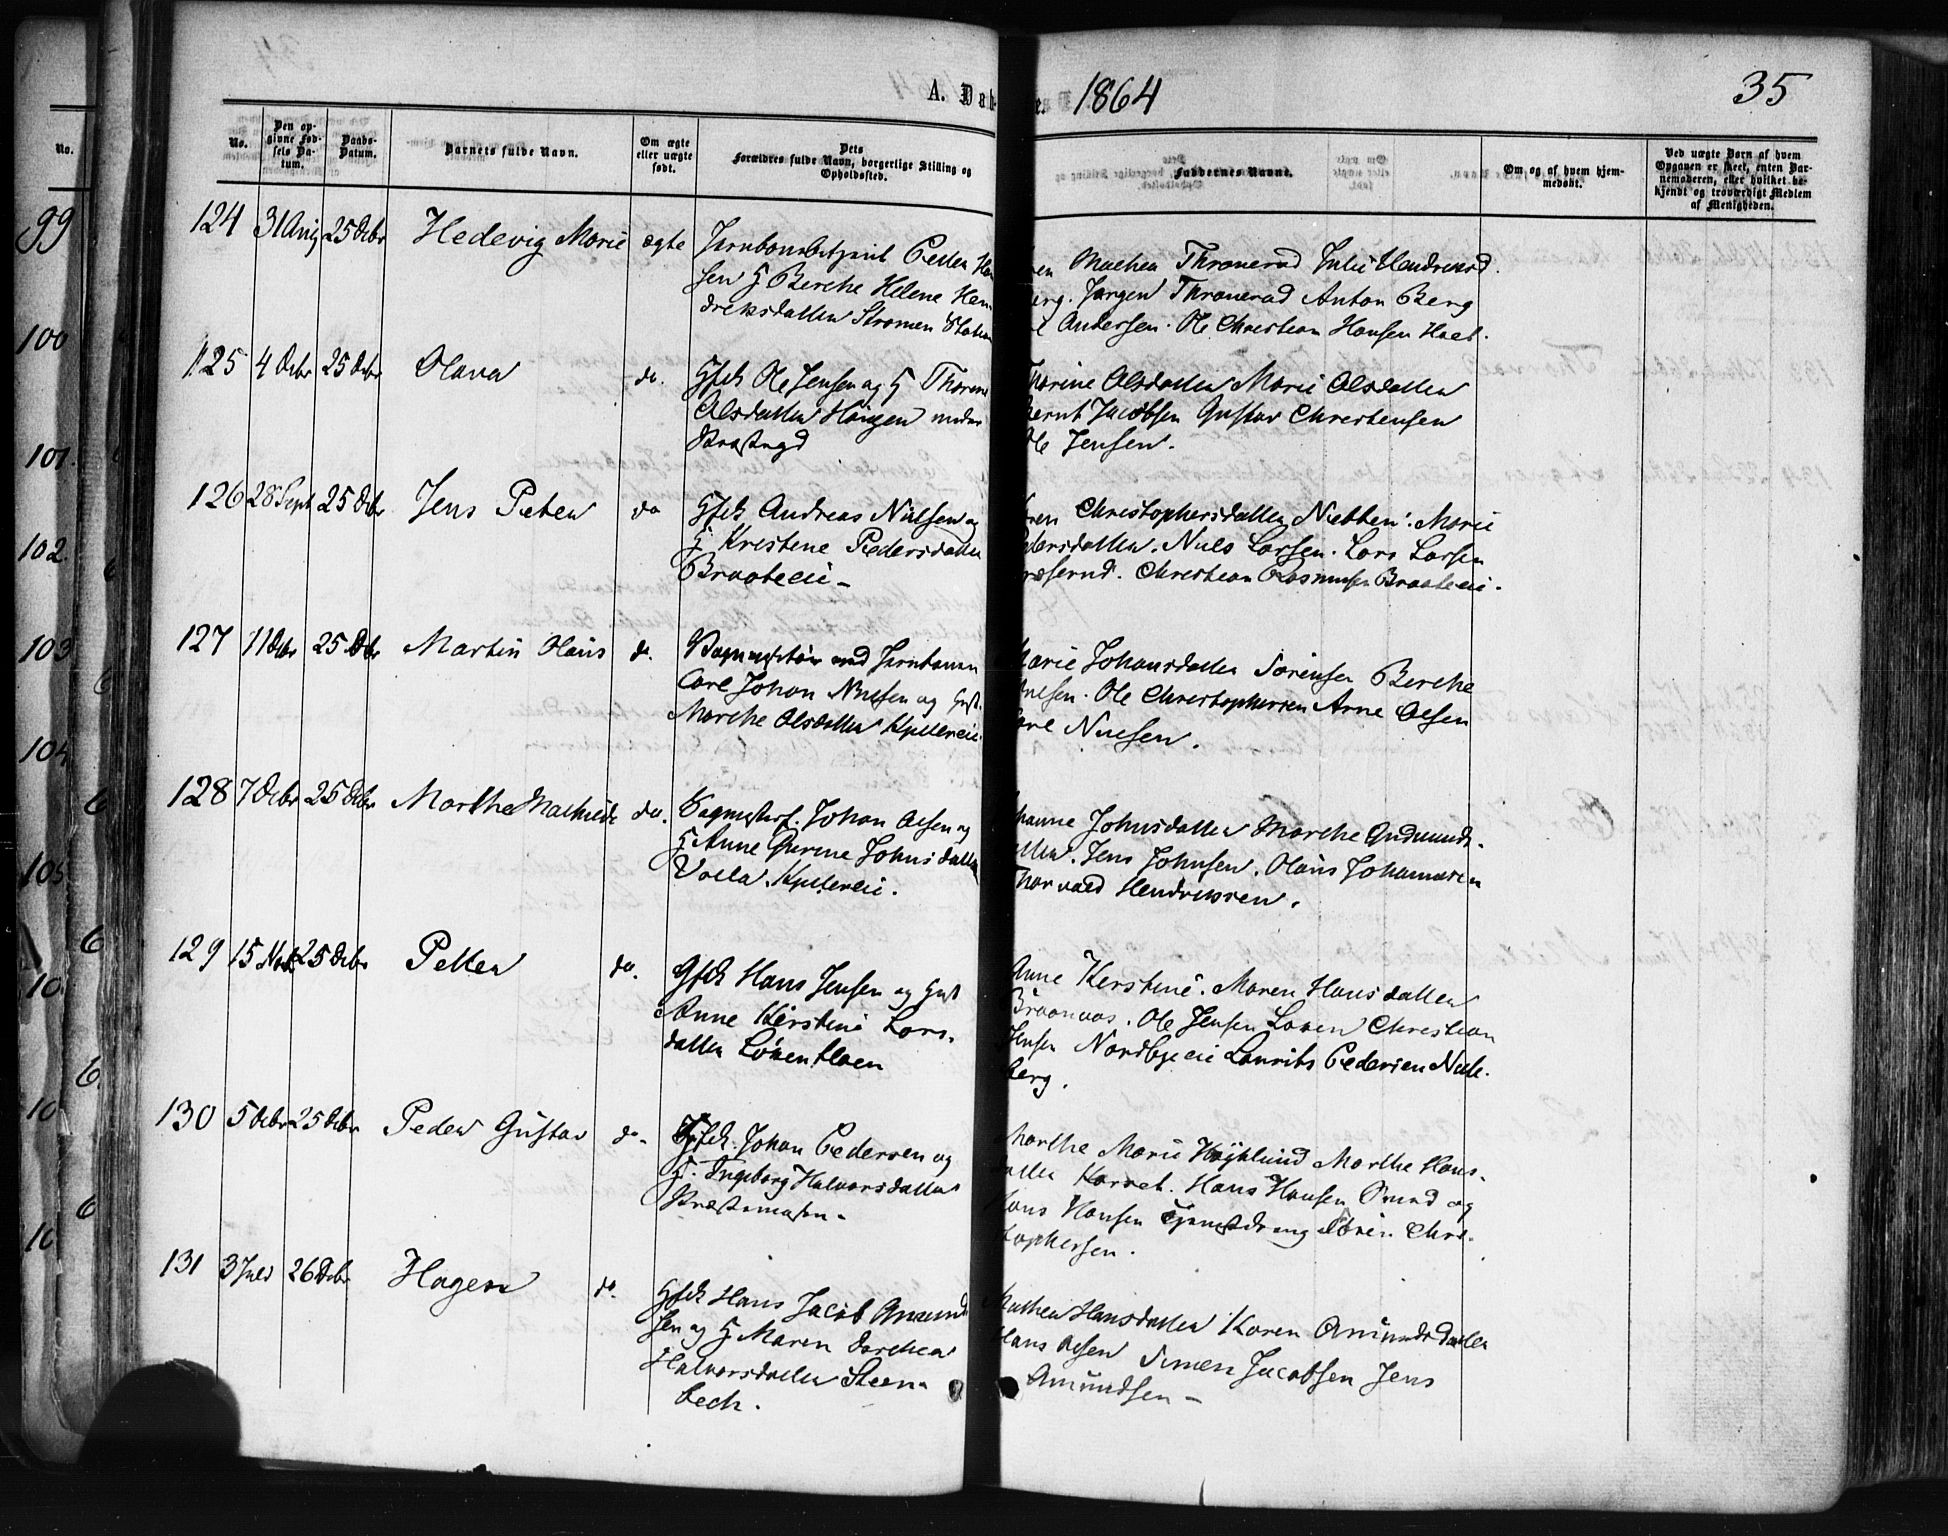 A. Døb
te. 1864
35
No.
Den opgivne Fødsels Datum.
Daabs-Datum.
Barnets fulde Navn.
Om ægte eller uægte født.
Dets Forældres fulde Navn, borgerlige Stilling og Opholdssted.
Faddernes Navne.
Om og af hvem hjemmedøbt.
Ved uægte Børn af hvem Opgaven er skeet, enten Barnemoderen, eller hvilket bekjendt og troværdigt Medlem af Menigheden.
No.
99
100
101.
102.
103
104
105
10
10
10
124 31 Aug 25 Debr Hedevig Marie ægte
Jernbanebetjent Peder Han
sen & H Berthe Helene Hen
driksdatter Strømen Station
Mathea Thronerud Julie Hendriksd.
erg. Jørgen Thronerud Anton Berg
Andersen. Ole Christian Hansen
125 4 Debr 25 Debr Olava do.
Gfdk Ole Jensen og H Thorine
Olsdatter Haugen nedre
Thorine Olsdatter Marie Olsdatter
Bernt Jacobsen Gustav Christensen
Ole Jensen.
126 28 Sept 25 Debr Jens Peter do
Gfdk Andreas Nilsen og
H Kristine Pedersdatter
Braateeie -
ren Christophersdatter Nebben. Marie
edersdatter. Niels Larsen. Lars Larsen
Christian Rasmusen Braateeie.
127 11 Debr 25 Debr Martin Olaus do.
ved Jernbanen
Carl Johan Nielsen og Hust.
Marthe Olsdatter
Marie Johansdatter Sørensen Berthe
nielsen. Ole Christophersen Arne Olsen
Carl Nielsen.
128 7 Debr 25 Debr Marthe Mathilde do.
Johan Olsen og
H Anne Gurine Johnsdatter
Volla
hanne Johnsdatter Marthe Gudmunds-
atter. Jens Johnsen. Olaus Johannesen
Thorvald Hendriksen.
129 15 Nov 25 Debr Petter do.
Gfdk Hans Jensen og Hust
Anne Kirstine Lars-
datter Løvenfloen
Anne Kerstine. Maren Hansdatter
Braanaas. Ole Jensen Løven Christian
Jensen Nordbyeeie Laurits Pedersen
berg.
130 5 Debr 25 Debr Peder Gustav do.
Gfdk. Johan Pedersen og
H. Ingeborg Halvorsdatter
Præstemosen.
Marthe Marie Marthe Hans-
datter Hans Hansen og
Hans Hansen Tjenestdreng Søren Chri-
stophersen.
131 3 Juli 26 Debr Hagen do.
Gfdk Hans Jacob Amund
sen og H Maren Dorthea
Halvorsdatter Steen-
bech.
Mathea Hansdatter Karen Amundsdatter
Hans Olsen Simen Jacobsen Jens
Amundsen -